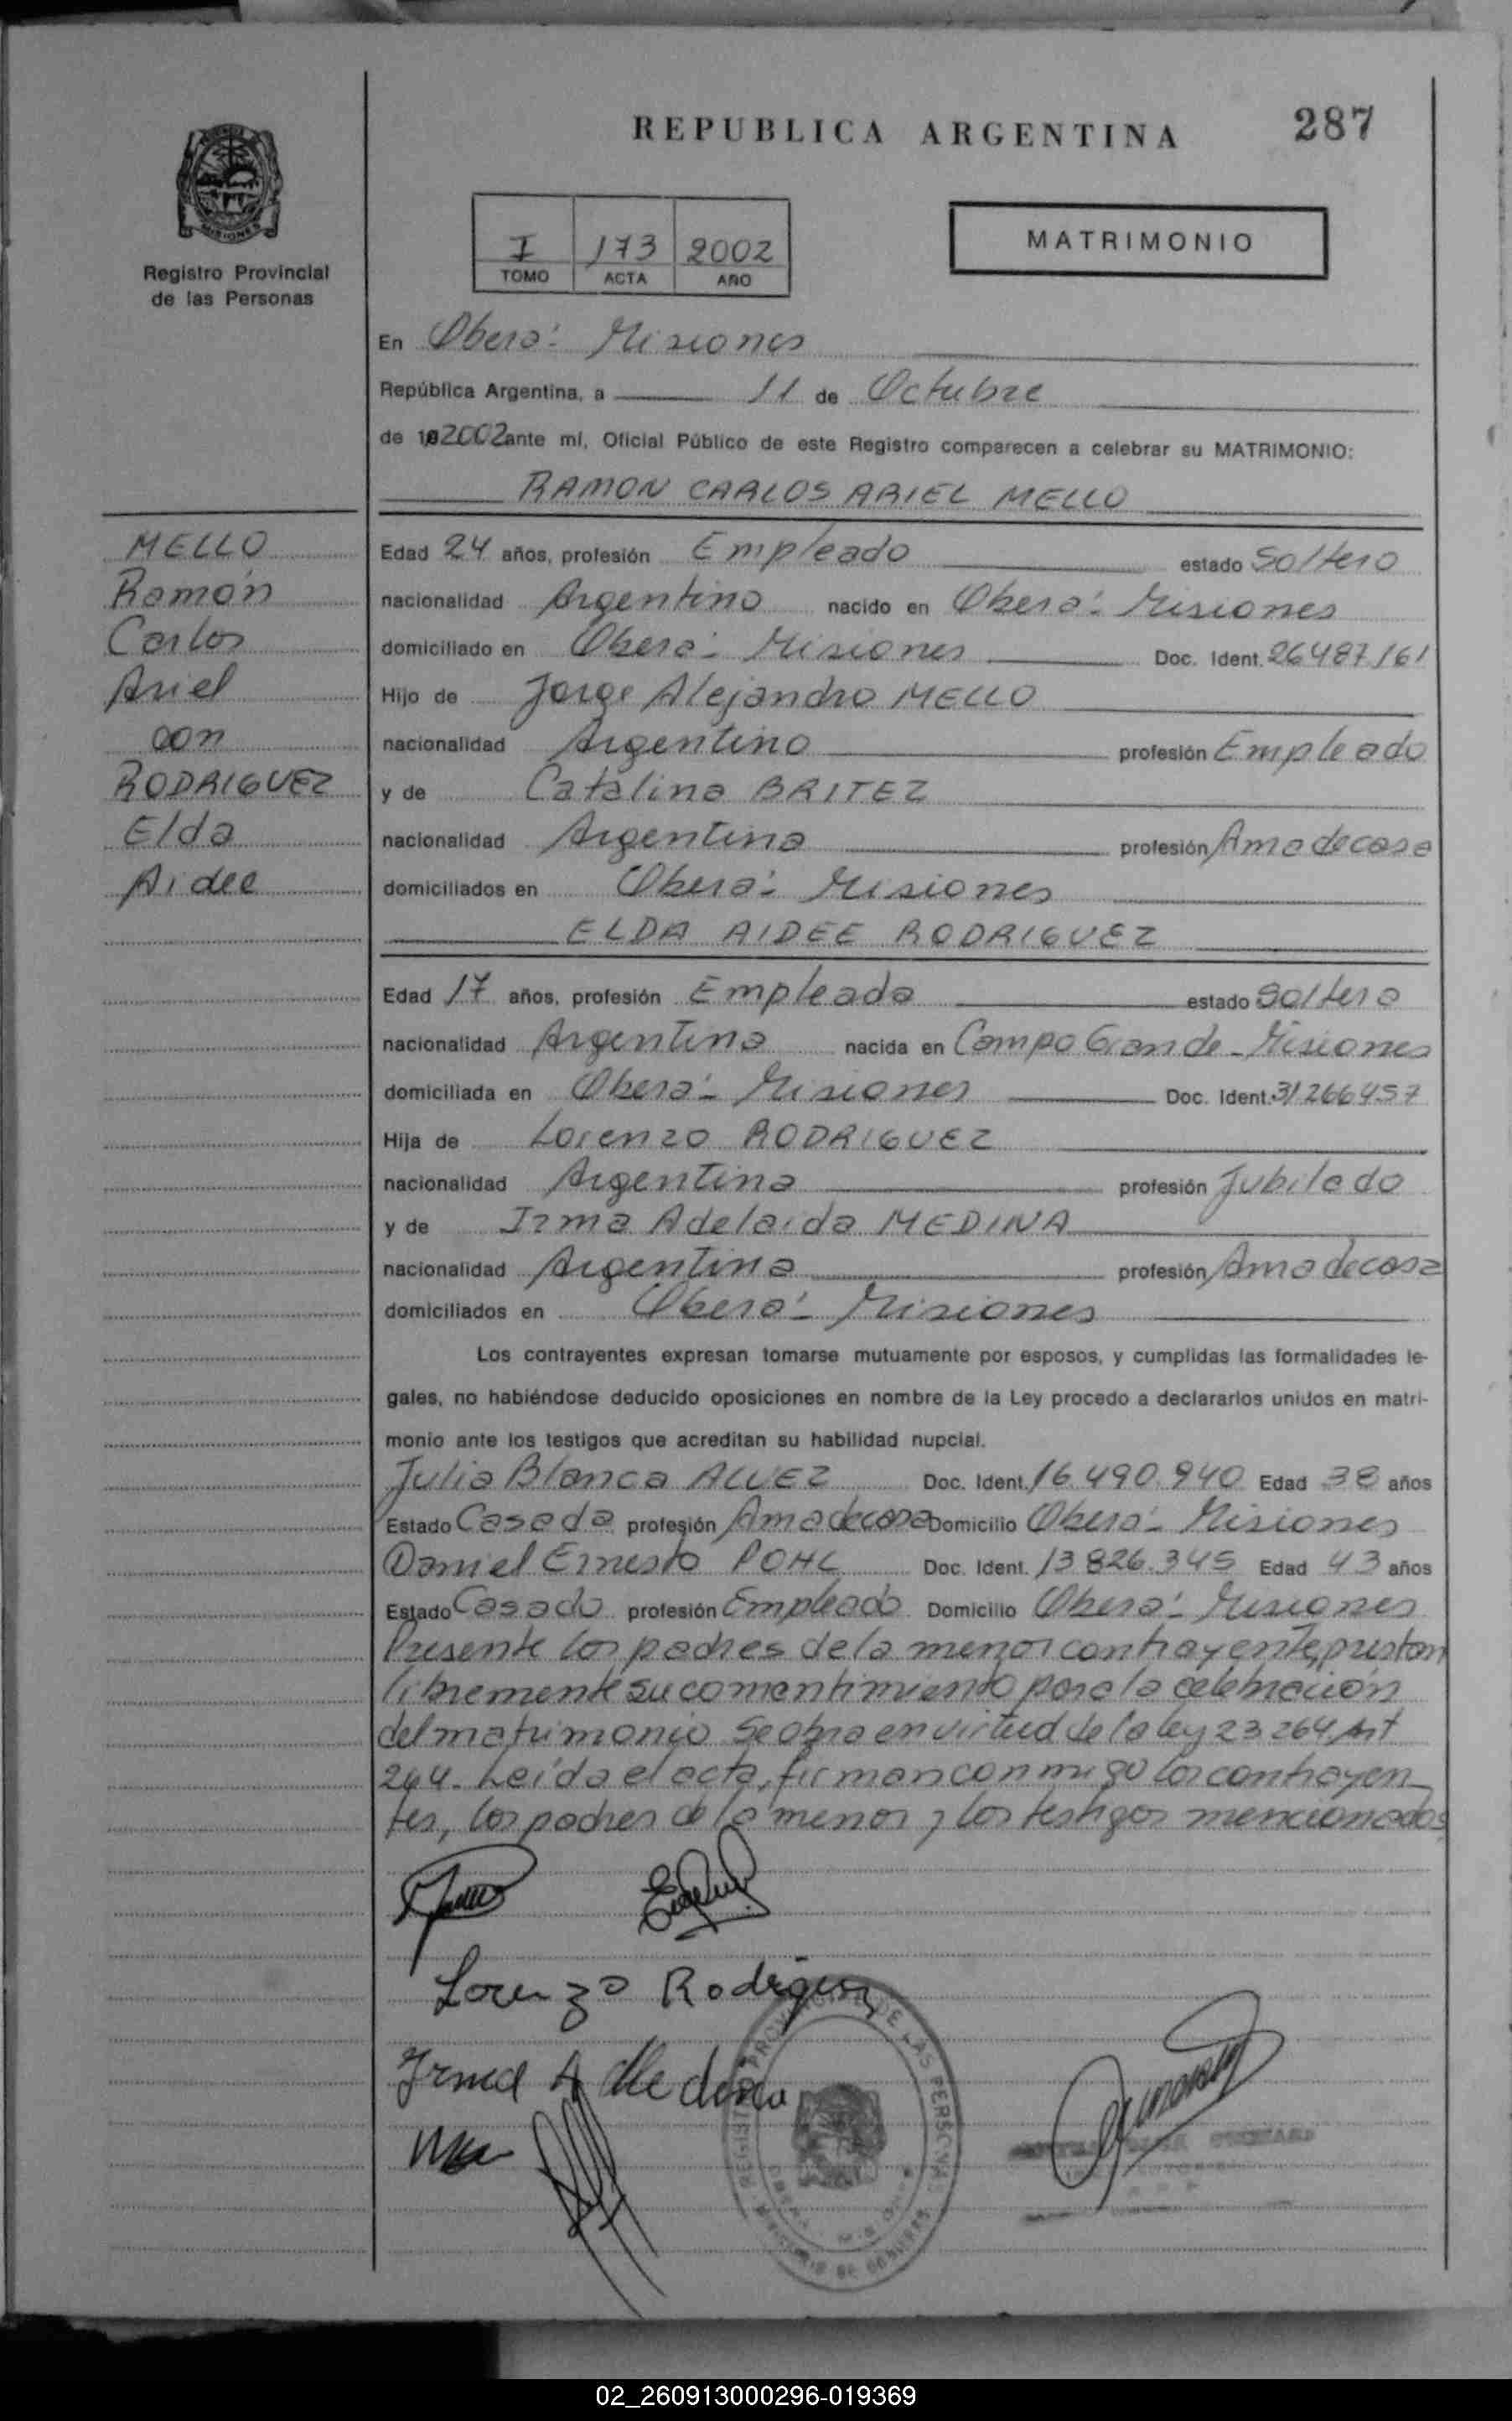 REPUBLICA ARGENTINA
287
MISIONES
Registro Provincial
de las Personas
I 173 2002
TOMO ACTA AÑO
MATRIMONIO
En Oberá - Misiones
República Argentina, a 11 de Octubre
de 2002 ante mí, Oficial Público de este Registro comparecen a celebrar su MATRIMONIO:
RAMON CARLOS ARIEL MELLO
MELLO
Ramón
Carlos
Ariel
con
RODRIGUEZ
Elda
Aidee
Edad 24 años, profesión Empleado estado Soltero
nacionalidad Argentino nacido en Oberá - Misiones
domiciliado en Oberá - Misiones Doc. Ident. 26487161
Hijo de Jorge Alejandro MELLO
nacionalidad Argentino profesión Empleado
y de Catalina BRITEZ
nacionalidad Argentina profesión Amadecasa
domiciliados en Oberá - Misiones
ELDA AIDEE RODRIGUEZ
Edad 17 años, profesión Empleada estado Soltera
nacionalidad Argentina nacida en Campo Grande - Misiones
domiciliada en Oberá - Misiones Doc. Ident. 31266457
Hija de Lorenzo RODRIGUEZ
nacionalidad Argentina profesión Jubilado
y de Irma Adelaida MEDINA
nacionalidad Argentina profesión Amadecasa
domiciliados en Oberá - Misiones
Los contrayentes expresan tomarse mutuamente por esposos, y cumplidas las formalidades le-
gales, no habiéndose deducido oposiciones en nombre de la Ley procedo a declararlos unidos en matri-
monio ante los testigos que acreditan su habilidad nupcial.
Julia Blanca ALVEZ Doc. Ident. 16.490.940 Edad 38 años
Estado Casada profesión Amadecasa Domicilio Oberá - Misiones
Daniel Ernesto POHL Doc. Ident. 13826.345 Edad 43 años
Estado Casado profesión Empleado Domicilio Oberá - Misiones
Presente los padres de la menor contrayente, prestan
libremente su comentimiento para la celebración
del matrimonio. Se obra en virtud de la ley 23264 Art
264. Leída el acta, firman conmigo los contrayen_
tes, los padres de la menor y los testigos mencionados
Lorenzo Rodriguez
Irma A Medina
REGISTRO PROVINCIAL DE LAS PERSONAS
02_260913000296-019369